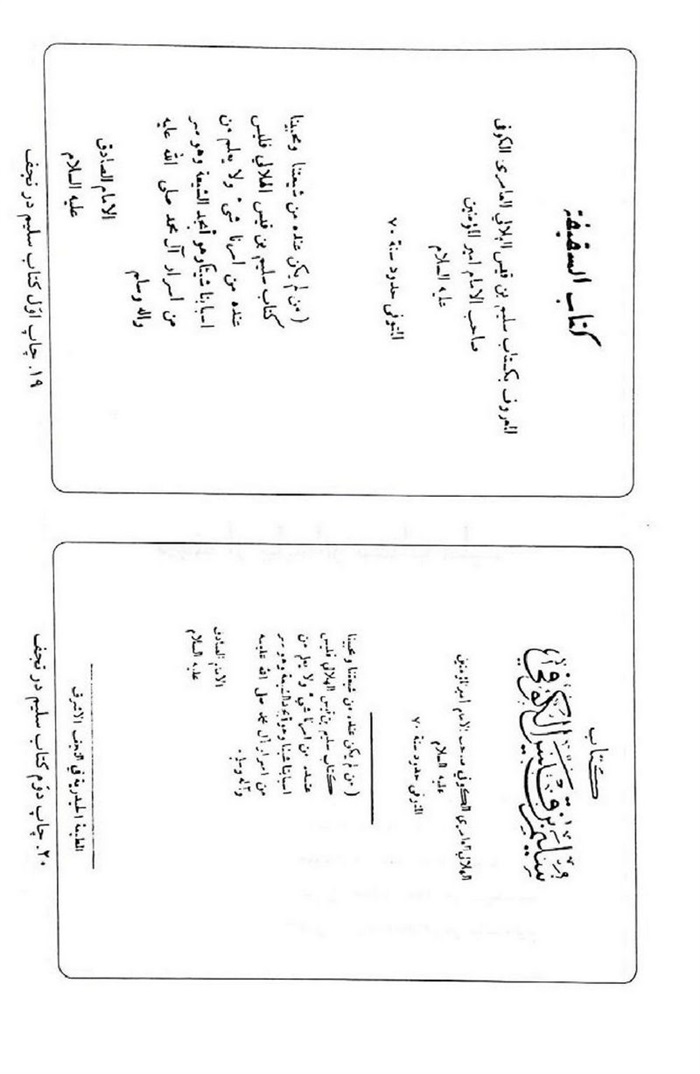 كتاب السقيفة
المعروف بكتاب سليم بن قيس الهلالي العامري الكوفي
صاحب الامام امير المؤمنين
عليه السلام
المتوفى حدود سنة ٧٠
( من لم يكن عنده من شيعتنا ومحبينا
كتاب سليم بن قيس الهلالي فليس
عنده من امرنا شيء ولا يعلم من
اسبابنا شيئا وهو أبجد الشيعة وهو سر
من اسرار آل محمد صلى الله عليه
وآله وسلم
الامام الصادق
عليه السلام
١٩. چاپ اوّل کتاب سلیم در نجف
كتاب
سليم بن قيس الكوفي
الهلالي العامري الكوفي صاحب الامام امير المؤمنين
عليه السلام
المتوفى حدود سنة ٧٠
( من لم يكن عنده من شيعتنا ومحبينا
كتاب سليم بن قيس الهلالي فليس
عنده من امرنا شيء ولا يعلم من
اسبابنا شيئا وهو أبجد الشيعة وهو سر
من اسرار آل محمد صلى الله عليه
وآله وسلم
الامام الصادق
عليه السلام
المطبعة الحيدرية في النجف الاشرف
٢٠. چاپ دوّم کتاب سلیم در نجف